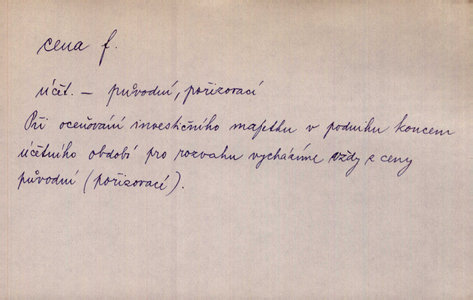 cena f.
účet. – původní, pořizovací
Při oceňování investičního majetku v podniku koncem
účetního období pro rozvahu vycházíme vždy z ceny
původní (pořizovací).